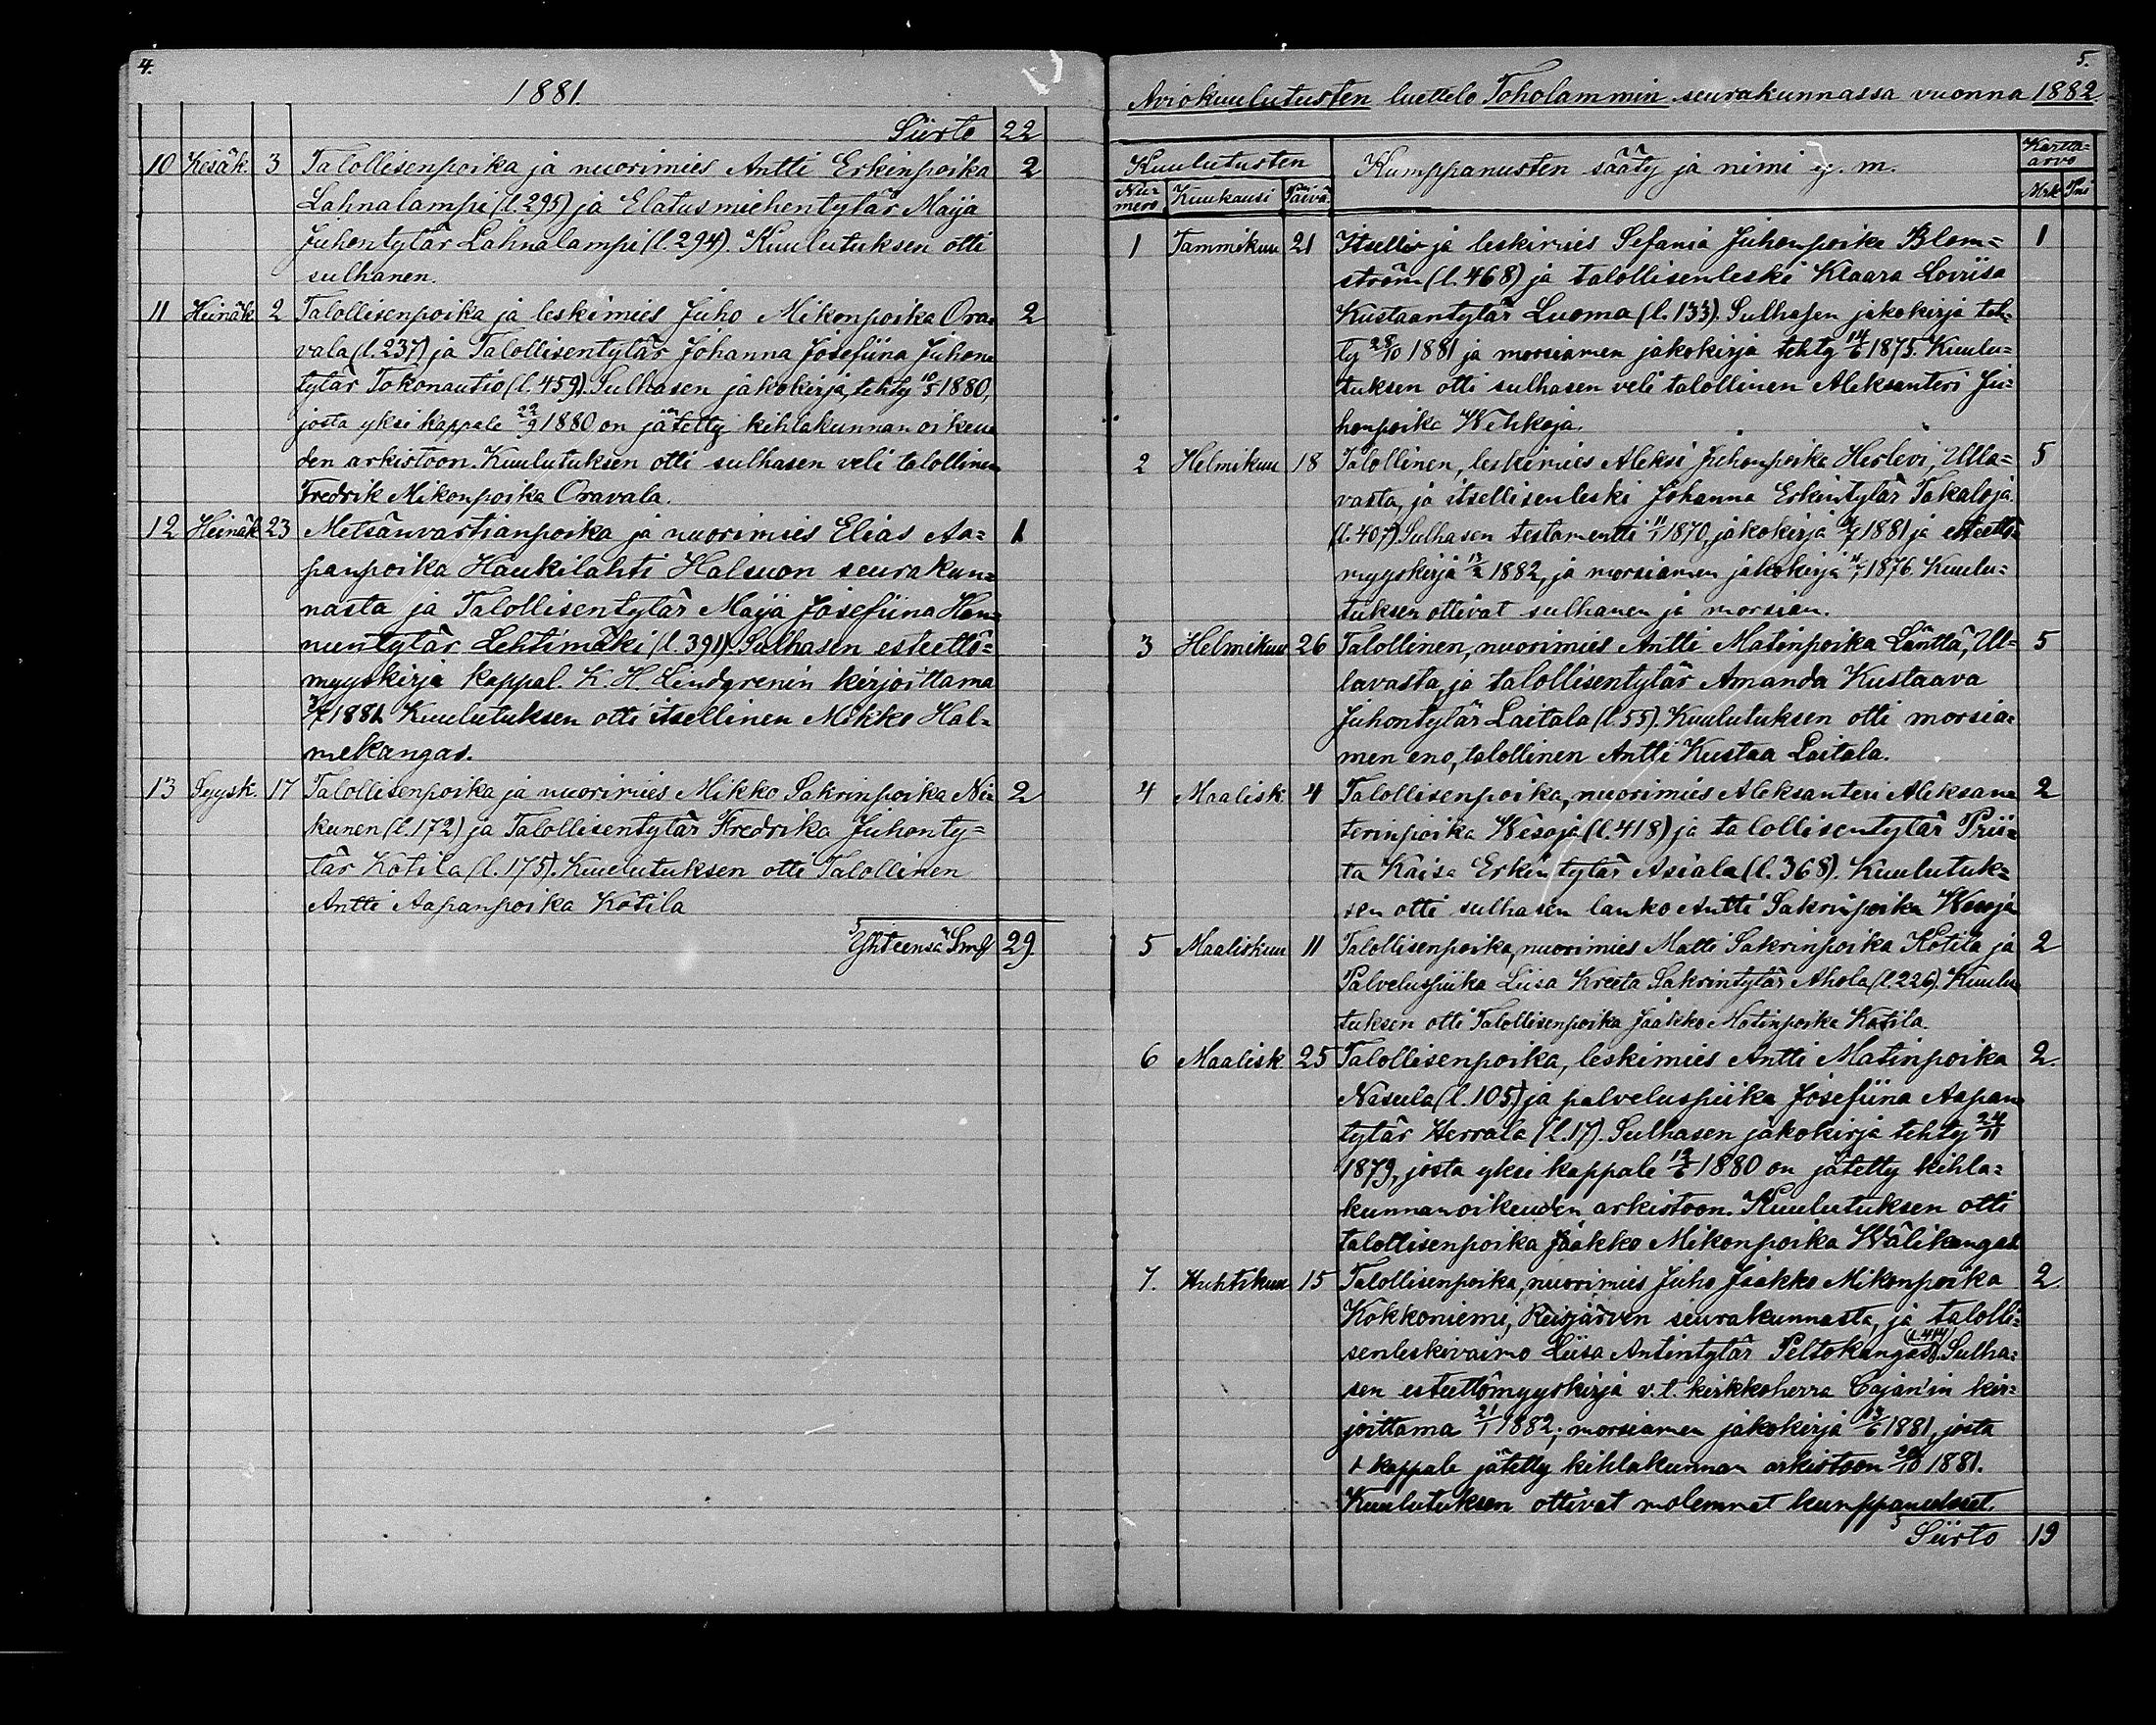 4.
1881.
Siirto 22
10 Kesäk. 3 Talollisenpoika ja nuorimies Antti Erkinpoika 2
Lahnalampi (l. 295) ja Elatusmiehentytär Maija
Juhontytär Lahnalampi (l. 294). Kuulutuksen otti
sulhanen.
11 Heinäk. 2 Talollisenpoika ja leskimies Juho Mikonpoika Ora= 2
vala (l. 237) ja Talollisentytär Johanna Josefiina Juhon=
tytär Tokonautio (l. 459). Sulhasen jakokirja, tehty 10/5 1880,
josta yksi kappale 22/9 1880 on jätetty kihlakunnan oikeu=
den arkistoon. Kuulutuksen otti sulhasen veli talollinen
Fredrik Mikonpoika Oravala.
12 Heinäk. 23 Metsänvartianpoika ja nuorimies Elias Aa= 1
panpoika Haukilahti Halsuan seurakun=
nasta ja Talollisentytär Maija Josefiina Han=
nuntytär Lehtimäki (l. 391). Sulhasen esteettö=
myyskirja kappal. K. H. Lindgrenin kirjoittama
1881. Kuulutuksen otti itsellinen Mikko Hal=
mekangas.
13 Syysk. 17 Talollisenpoika ja nuorimies Mikko Sakrinpoika Nis= 2
kunen (l. 172) ja Talollisentytär Fredrika Juhonty=
tär Kotila (l. 175). Kuulutuksen otti Talollinen
Antti Aapanpoika Kotila
Yhteensä Smf 29.
5.
Aviokuulutusten luettelo Toholammin seurakunnassa vuonna 1882.
Kuulutusten Kumppanusten sääty ja nimi y. m. Kartta=
arvo
Nu=
mero Kuukausi Päivä Mrk Pni
1 Tammikuu 21 Itsellis ja leskimies Sefania Juhonpoika Blom= 1
ström (l. 468) ja talollisenleski Klaara Loviisa
Kustaantytär Luoma (l. 133). Sulhasen jakokirja teh=
ty 28/10 1881 ja morsiamen jakokirja tehty 14/6 1875. Kuulu=
tuksen otti sulhasen veli talollinen Aleksanteri Ju=
honpoika Wehkoja.
2 Helmikuu 18 Talollinen, leskimies Aleksi Juhonpoika Herlevi, Ulla= 5
vasta, ja itsellisenleski Johanna Erkintytär Takaloja
(l. 407). Sulhasen testamentti 11/1 1870, jakokirja 1881 ja esteettö=
myyskirja 13/2 1882, ja morsiamen jakokirja 1876. Kuulu=
tuksen ottivat sulhanen ja morsian.
3 Helmikuu 26 Talollinen, nuorimies Antti Matinpoika Länttä, Ul= 5
lavasta, ja talollisentytär Amanda Kustaava
Juhontytär Laitala (l. 55). Kuulutuksen otti morsia=
men eno, talollinen Antti Kustaa Laitala.
4 Maalisk. 4 Talollisenpoika, nuorimies Aleksanteri Aleksan= 2
terinpoika Wesoja (l. 418) ja talollisentytär Prii=
ta Kaisa Erkintytär Asiala (l. 368). Kuulutuk=
sen otti sulhasen lanko Antti Sakrinpoika Wesoja
5 Maaliskuu 11 Talollisenpoika, nuorimies Matti Sakrinpoika Kotila ja 2
Palveluspiika Liisa Kreeta Sakrintytär Ahola (l. 226). Kuulu=
tuksen otti Talollisenpoika Jaakko Matinpoika Kotila.
6 Maalisk. 25 Talollisenpoika, leskimies Antti Matinpoika 2.
Nisula (l. 105.) ja palveluspiika Josefiina Aapan=
tytär Herrala (l. 17). Sulhasen jakokirja tehty 24/11
1879, josta yksi kappale 12/6 1880 on jätetty kihla=
kunnanoikeuden arkistoon. Kuulutuksen otti
talollisenpoika Jaakko Mikonpoika Wälikangas
7. Huhtikuu 15 Talollisenpoika, nuorimies Juho Jaakko Mikonpoika 2.
Kokkoniemi, Reisjärven seurakunnasta, ja talolli=
senleskivaimo Liisa Antintytär Peltokangas (l. 414). Sulha=
sen esteettömyyskirja v. t. kirkkoherra Cajan'in kir=
joittama 21/1 1882; morsiamen jakokirja 13/6 1881, josta
1 kappale jätetty kihlakunnan arkistoon 20/10 1881.
Kuulutuksen ottivat molemmat kumppanukset.
Siirto 19